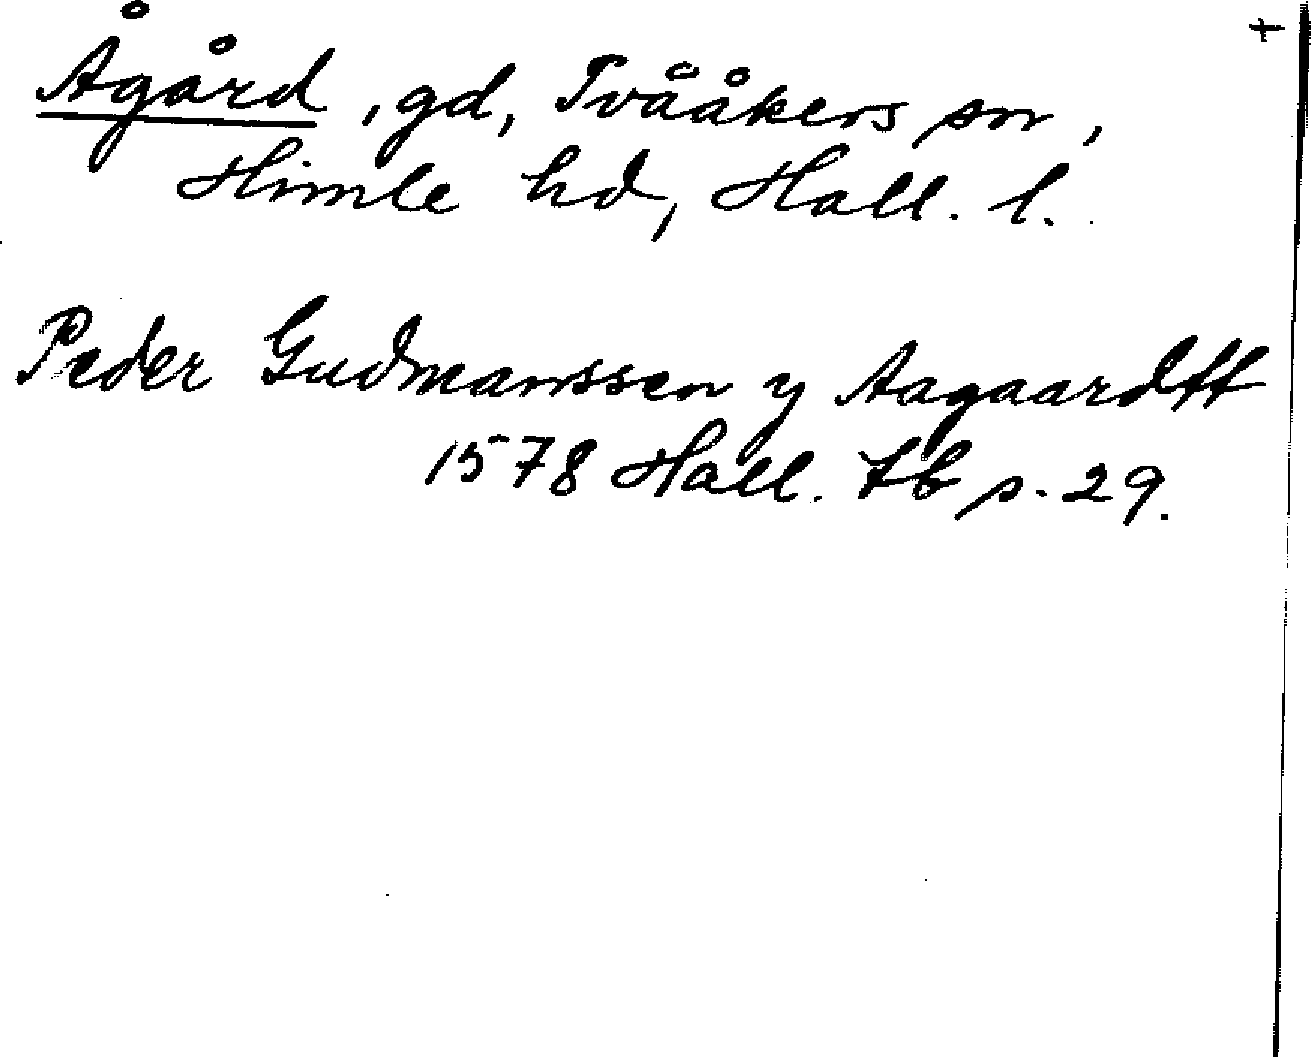 +
Ågård, gd, Tvååkers sn,
Himle hd, Hall. l.
Peder Gudmanssen y Aagaardtt
1578 Hall. tb p. 29.